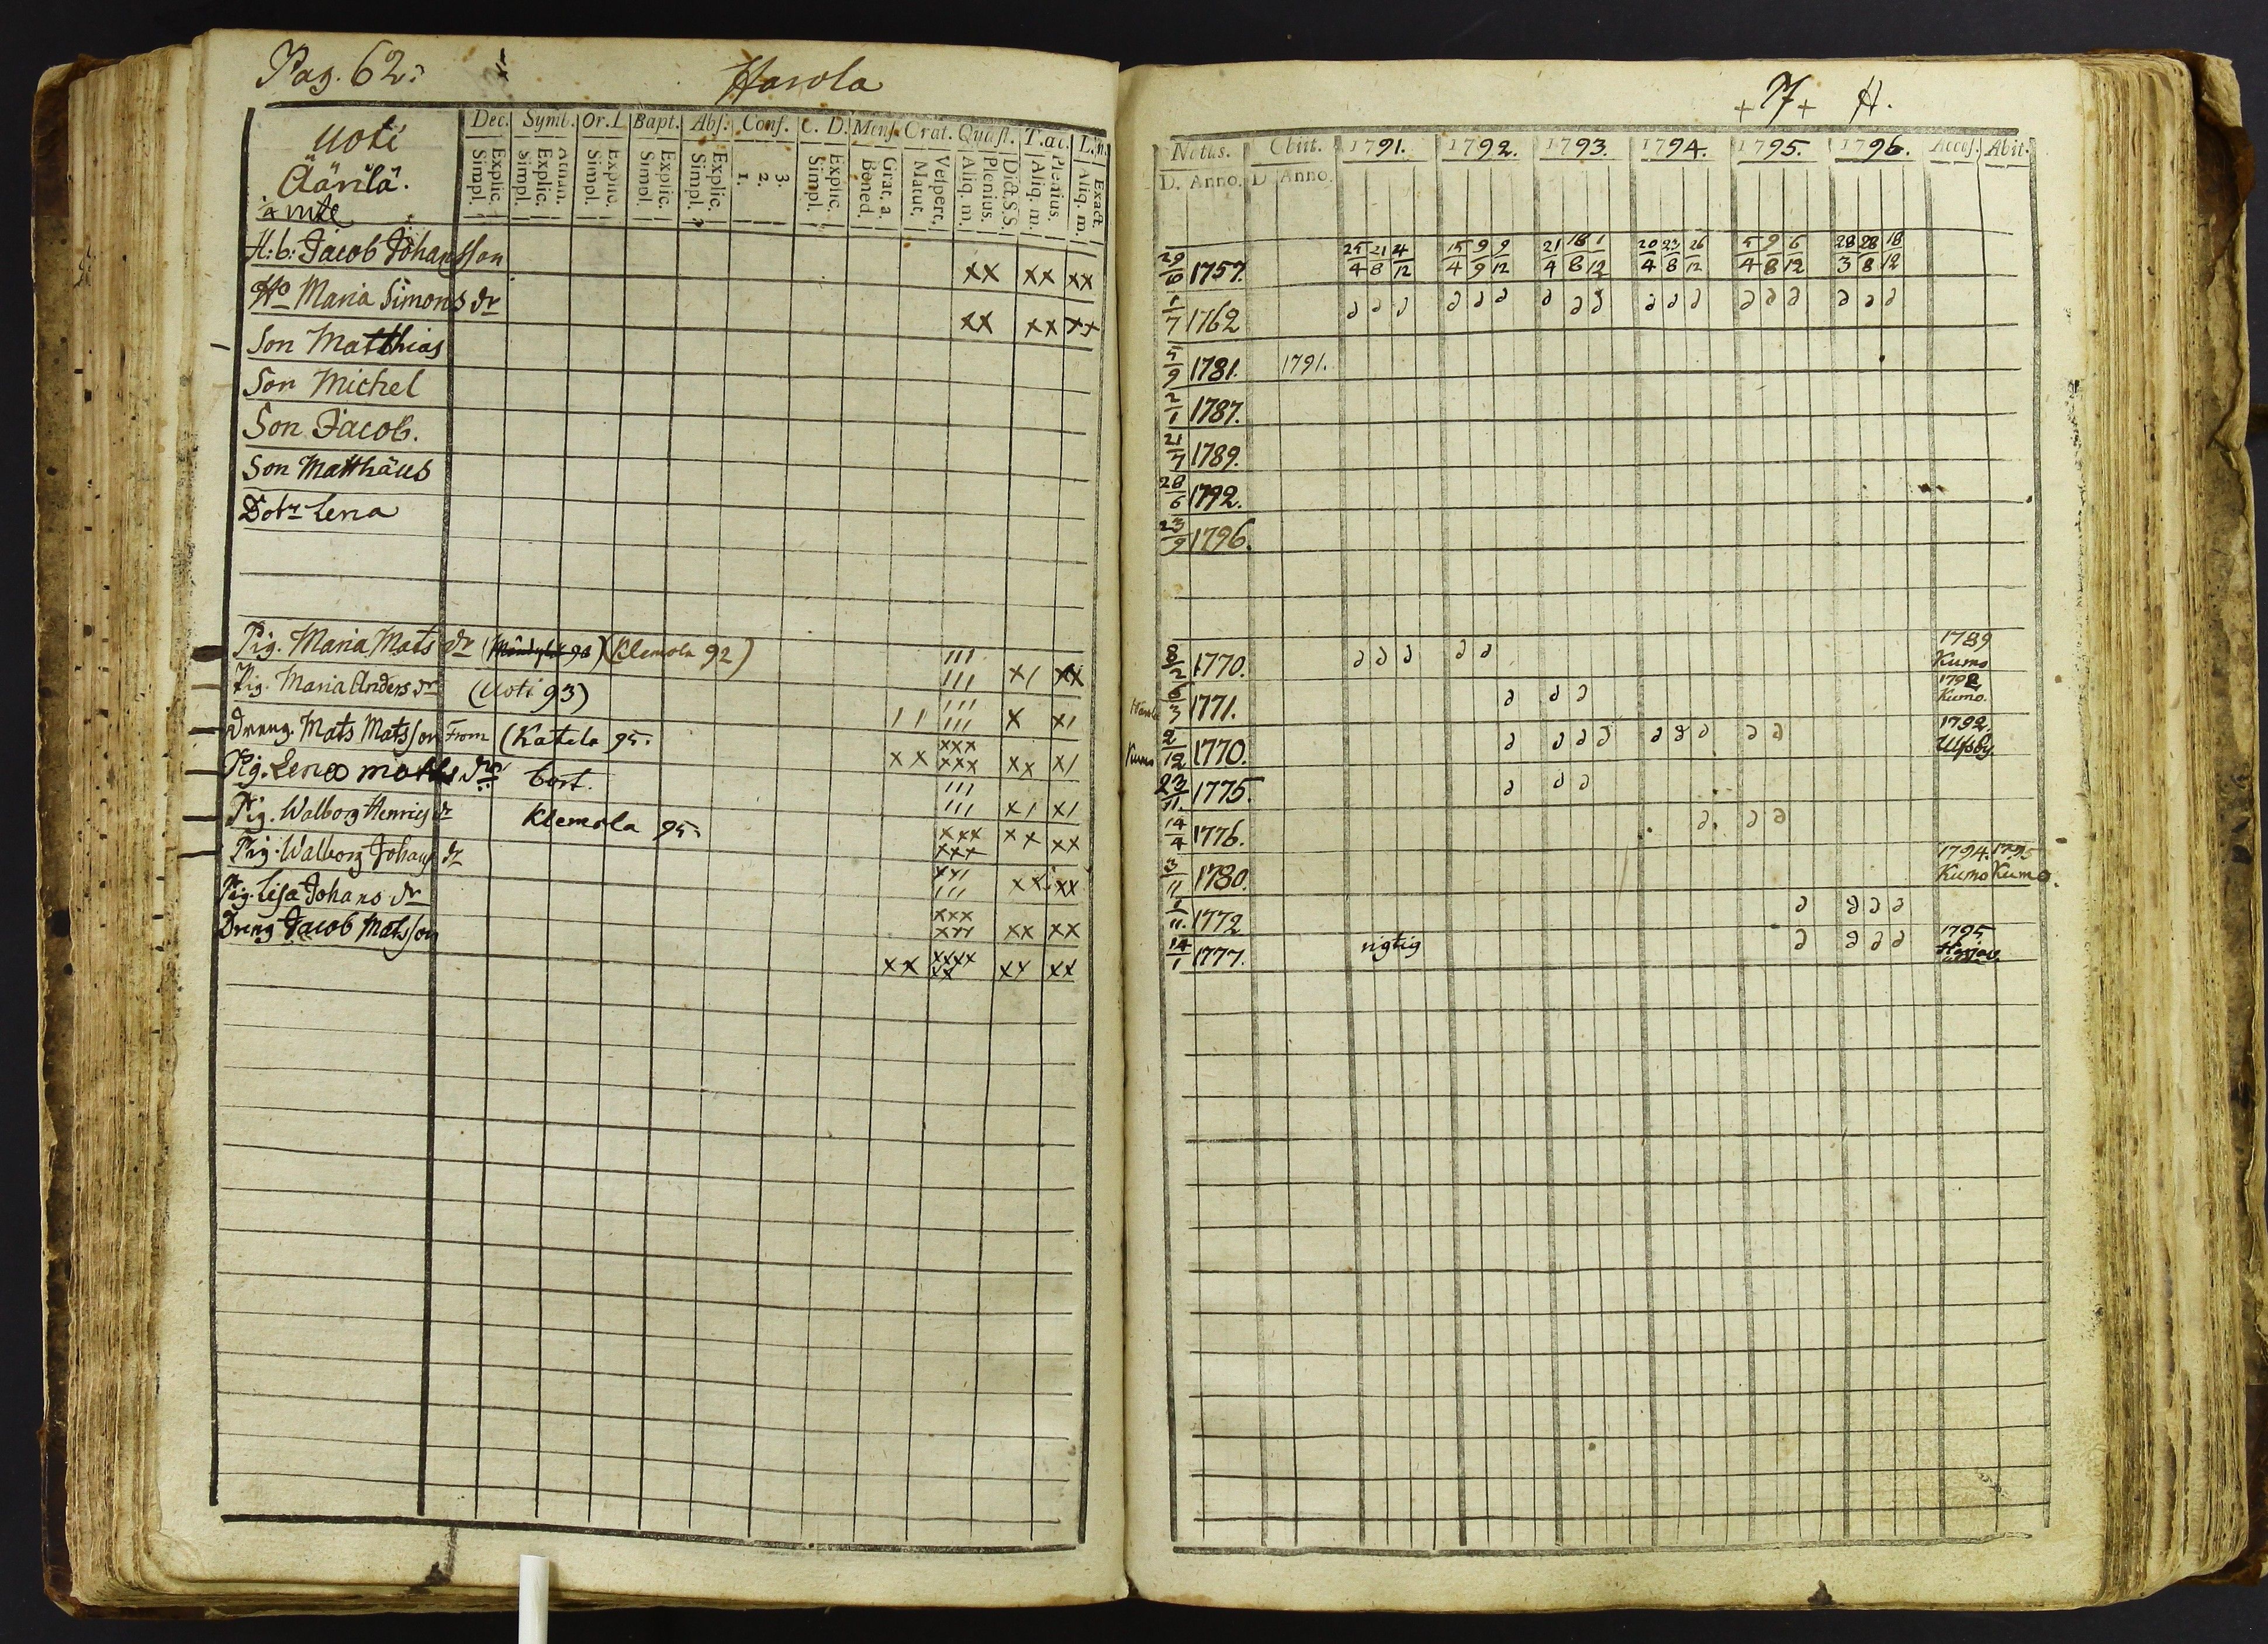 Pag. 62.
Harola
Uoti
Äärilä.
Dec. Symb. Or. L Bapt. Abs. Conf. C. D. Mens. Orat. Quæst. T.œc. L. n.
Explic. Simpl. Explic. Simpl. Explic. Simpl. Explic. Simpl. Explic. Simpl. 3. 2. 1. Explic. Simpl. Grat. a. Bened. Vespert. Matut. Aliq. m. Plenius. Dict. S.S. Aliq. m. Plenius. Aliq. m. Exact.
H: b: Jacob Johansson xx xx xx
Ho Maria Simons dr xx xx xx
Son Matthias
Son Michel
Son Jacob.
Son Matthäus
Dotr Lena
Pig. Maria Mats dr (Klemola 92) ||| ||| x| xx
Pig. Maria Anders dr (Uoti 93) | | ||| ||| x x|
Dreng. Mats Matsson From (Katila 95. x x xxx xxx xx x|
Pig. Lena Matts dr bort. ||| ||| x| x|
Pig. Walborg Henrics dr Klemola 95. xxx xxx xx xx
Pig. Walborg Johans dr xx| ||| xx xx
Pig. Lisa Johans dr xxx xxx xx xx
Dreng Jacob Matsson xx xxxx xx xx xx
+ 7 + H.
Natus. Obiit. 1791. 1792. 1793. 1794. 1795. 1796. Access. Abit.
D. Anno. D Anno.
29/10 1757. 25/4 21/8 4/12 15/4 9/9 9/12 21/4 18/8 1/12 20/4 23/8 26/12 5/4 9/8 6/12 28/3 28/8 18/12
1/7 1762 ∂ ∂ ∂ ∂ ∂ ∂ ∂ ∂ ∂ ∂ ∂ ∂ ∂ ∂ ∂ ∂ ∂ ∂
5/9 1781. 1791.
2/1 1787.
21/7 1789.
28/6 1792.
23/9 1796.
8/2 1770. ∂ ∂ ∂ ∂ ∂ 1789 Kumo
6/3 1771. ∂ ∂ ∂ 1792 Kumo.
Kumo 2/12 1770. ∂ ∂ ∂ ∂ ∂ ∂ ∂ ∂ ∂ 1792. Ulfsby
23/11. 1775. ∂ ∂ ∂
14/4 1776. ∂. ∂ ∂
3/11 1780. 1794. Kumo 1795 Kumo.
1/11. 1772 ∂ ∂ ∂ ∂
14/1 1777. rigtig ∂ ∂ ∂ ∂ 1795